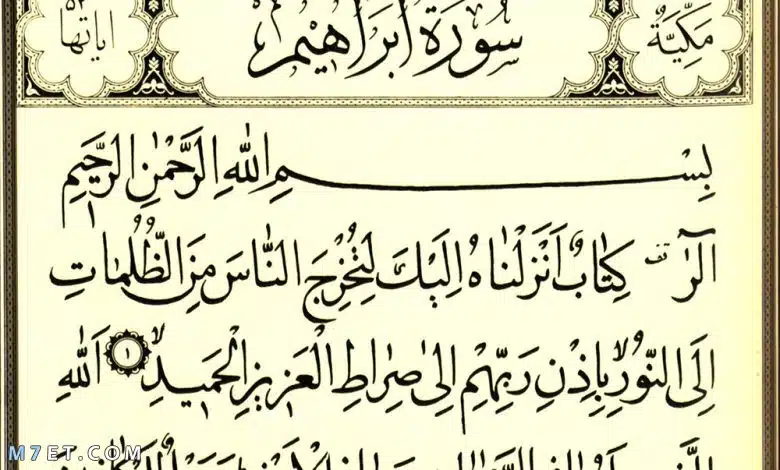 مَكِّيَّةٌ سُورَةُ اَبْرَاهِيمَ اٰيَاتُهَا ٥٢
بِسْمِ اللّٰهِ الرَّحْمٰنِ الرَّحِيمِ
الٓرٰ قف كِتَابٌ اَنْزَلْنَاهُ اِلَيْكَ لِتُخْرِجَ النَّاسَ مِنَ الظُّلُمَاتِ
اِلَى النُّورِ لا بِاِذْنِ رَبِّهِمْ اِلٰى صِرَاطِ الْعَزِيزِ الْحَمِيدِ لا ١ اَللّٰهِ
M7ET.COM